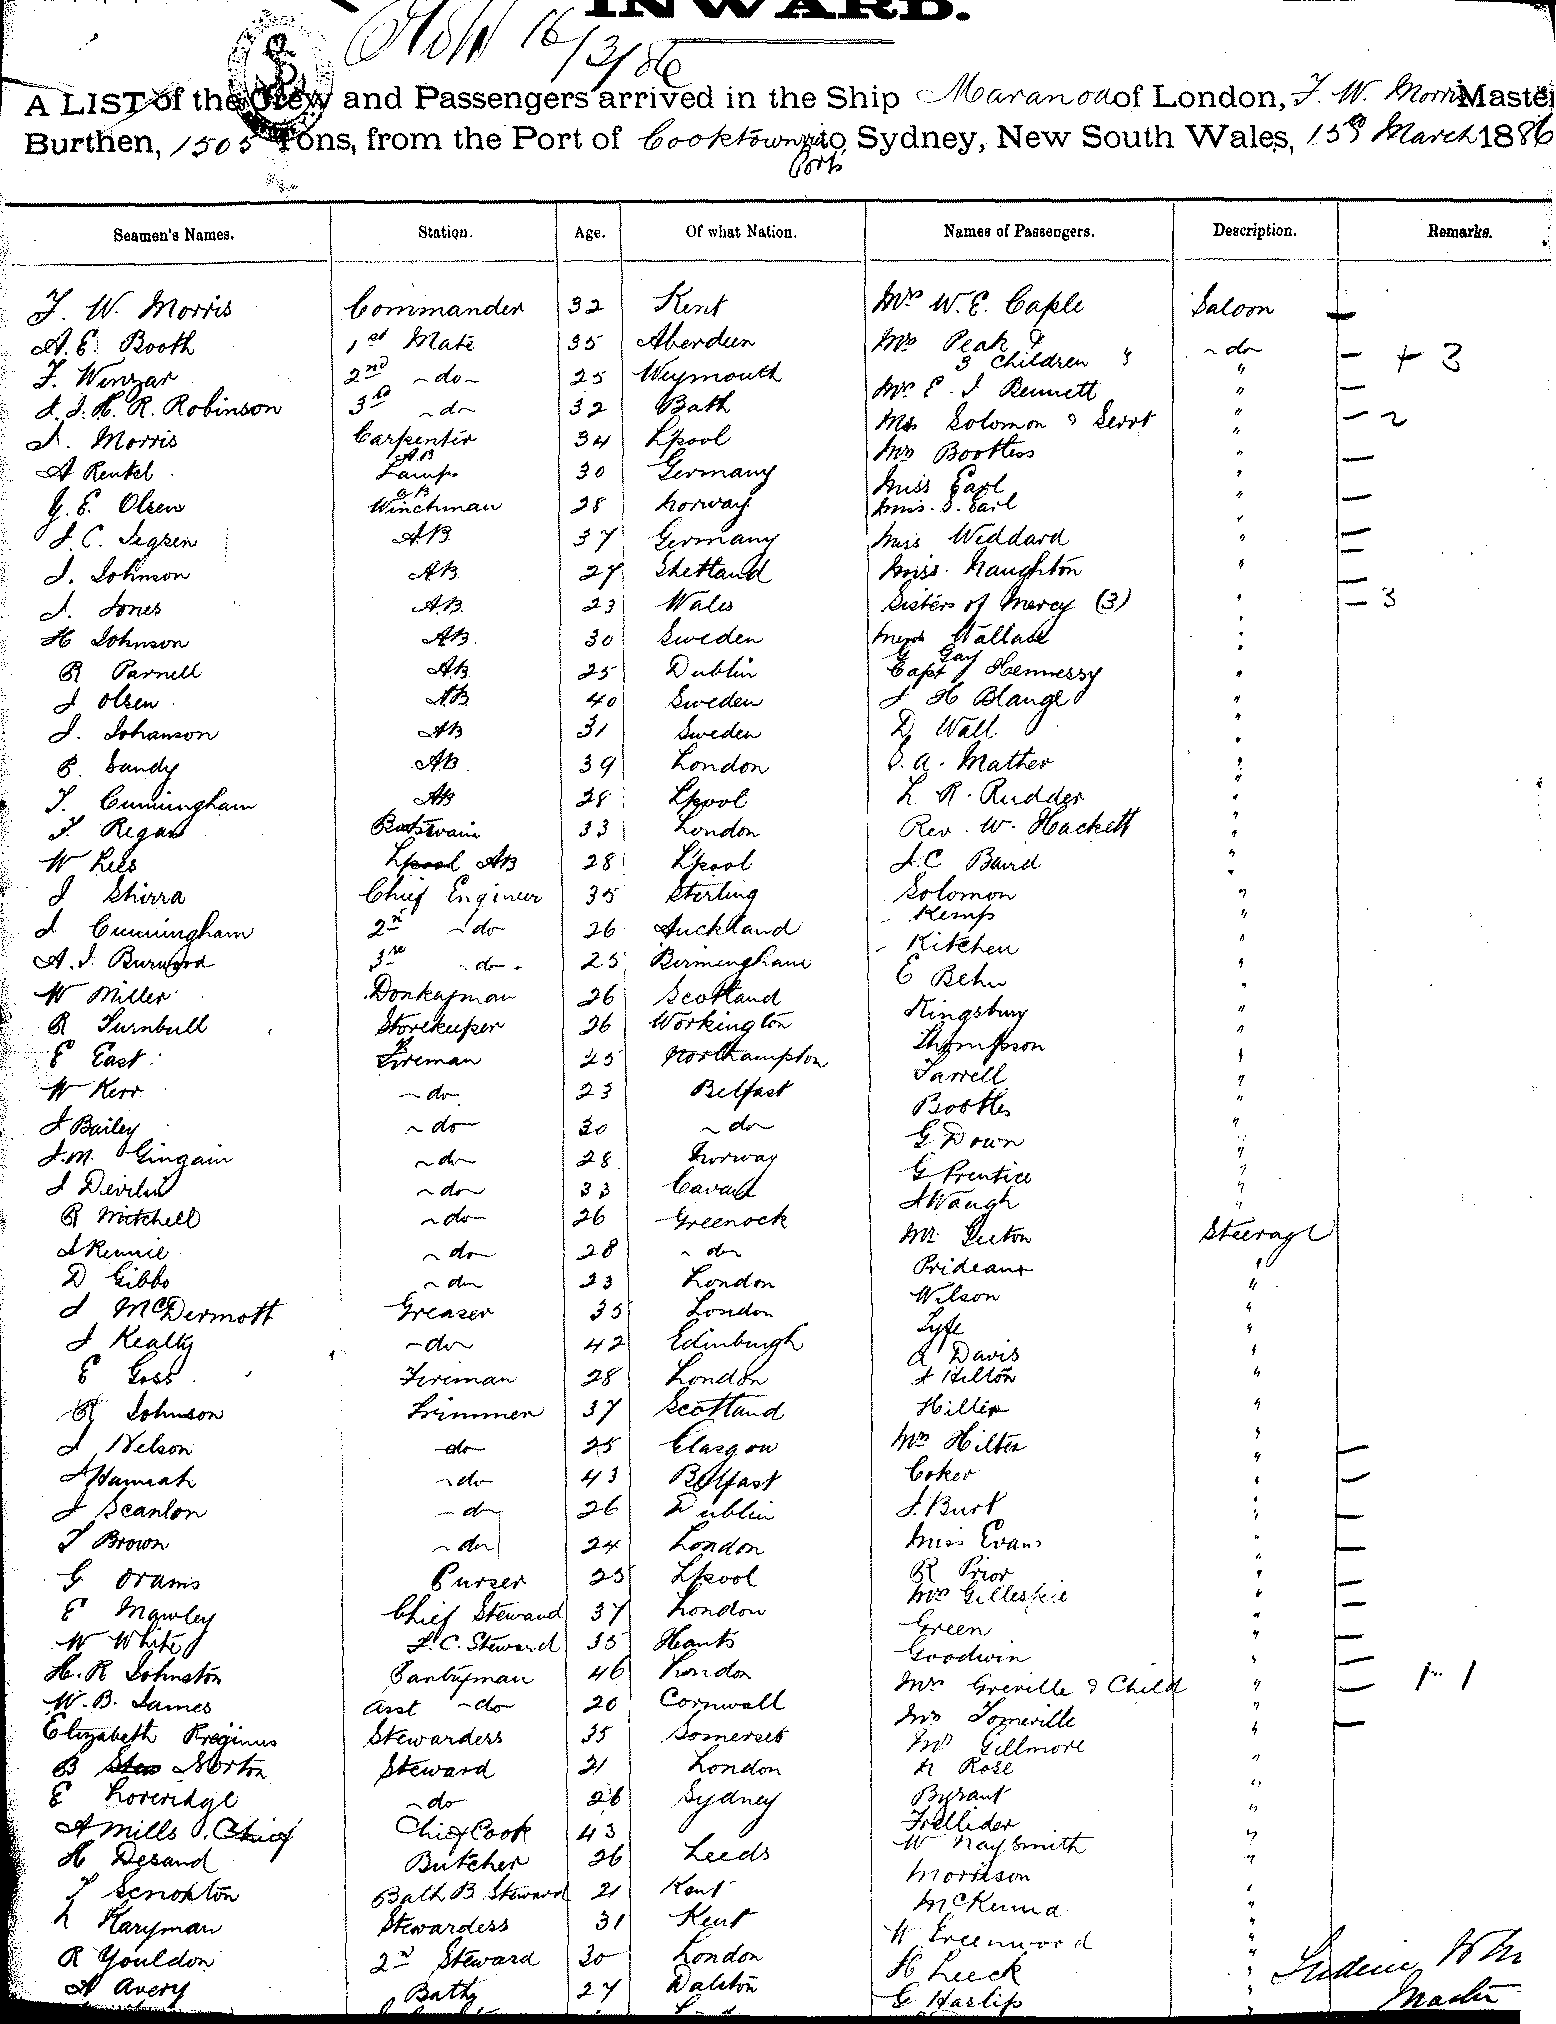 INWARD.
16/3/86
A LIST of the Crew and Passengers arrived in the Ship Maranoa of London, F. W. Morris Master
Burthen, 1505 Tons, from the Port of Cooktown & to Sydney, New South Wales, 15th March 1886
Ports
Seamen's Names. Station. Age. Of what Nation. Names of Passengers. Description. Remarks.
F. W. Morris Commander 32 Kent Mrs W. E. Caple Saloon
A. E. Booth 1st Mate 35 Aberdeen Mrs Peak & do
F. Winzar 2nd do 25 Weymouth 3 Children " + 3
J. J. H. R. Robinson 3rd do 32 Bath E. J. Bennett "
J. Morris Carpenter 34 Lpool Mrs Solomon & Servt " 2
A Renkel AB Lamps 30 Germany Mrs Bootles "
G. E. Olsen AB Winchman 28 Norway Miss Earl "
Miss. S. Earl
J. C. AB 37 Germany Miss Weddard "
J. Johnson AB 27 Shetland Miss. Naughton "
J. Jones AB 23 Wales Sisters of Mercy (3) " 3
H Johnson AB 30 Sweden Wallace "
G Gay
R Parnell AB 25 Dublin Capt Hennessy "
J Olsen AB 40 Sweden J H Blange "
J. Johanson AB 31 Sweden D Wall "
P. Sandy AB 39 London S. A. Mather "
T. Cunningham AB 28 Lpool L R. Rudder "
T. Regan Boatswain 33 London Rev. W. Hackett "
W Lees Lpool AB 28 Lpool J. C Baird "
J Shirra Chief Engineer 35 Sterling Solomon "
J Cunningham 2nd do 26 Auckland Kemp "
A. J. Burwood 3rd do 25 Birmingham Kitchen "
W Miller Donkeyman 26 Scotland E Behn "
R Turnbull Storekeeper 26 Workington Kingsbury "
E East Fireman 25 Northampton Thompson "
W Kerr do 23 Belfast Farrell "
J Bailey do 30 do Bootles "
J. M. Gingain do 28 Norway G Down "
J Devlin do 33 Cavan G Prentice "
R Mitchell do 26 Greenock J Waugh "
J Rennie do 28 do Mr Seeton Steerage
D Gibbs do 23 London Prideaux "
J McDermott Greaser 35 London Wilson "
J Kealty do 42 Edinburgh Fyfe "
E Goss Fireman 28 London A Davis "
R Johnson Trimmer 37 Scotland J Hilton "
Hiller
J Nelson do 25 Glasgow Mrs Hilter "
J Hannah do 43 Belfast Coker "
J Scanlon do 26 Dublin J. Burt "
T Brown do 24 London Miss Evans "
G Orams Purser 25 Lpool R Prior "
E Mawley Chief Steward 37 London Mrs Gillespie "
W White F. C. Steward 35 Hants Green "
H. R Johnston Pantryman 46 London Goodwin "
W. B. James Asst do 20 Cornwall Mrs Greville & Child " 1
Elizabeth Stewardess 35 Somerset Mrs Somerville "
B Norton Steward 21 London Mr Gillmore "
E Loveridge do 26 Sydney N Rose "
A Mills Chief Chief Cook 43 Bryant "
H Desand Butcher 26 Leeds Trellider "
W Naysmith
T Scroxton Bath B. Steward 21 Kent Morrison "
L Haryman Stewardess 31 Kent McKenna "
R Youldon 2nd Steward 30 London W Greenwood "
A Avery Bath 27 Dalston H Leeck "
G Harlip
Master